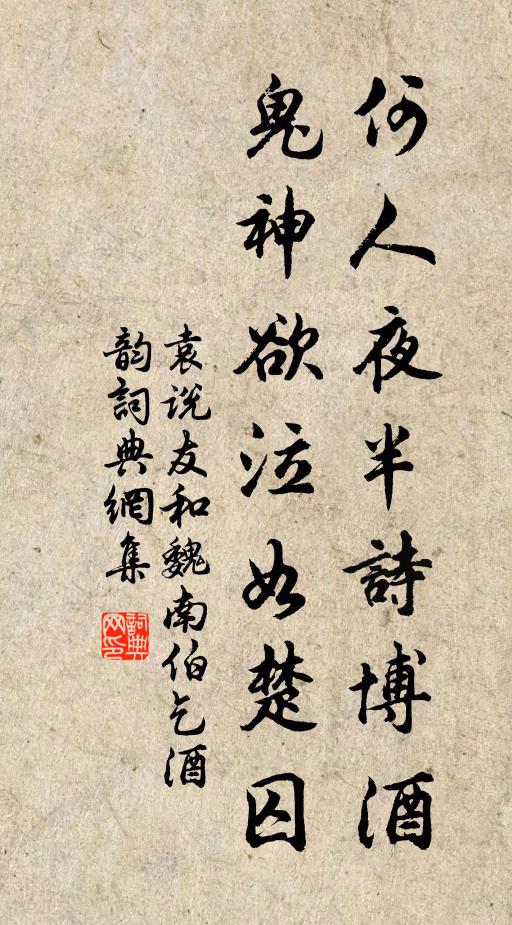 何人夜半詩博酒
鬼神欲泣如楚囚
袁説友和魏南伯乞酒
韵詞典網集
詞典网印